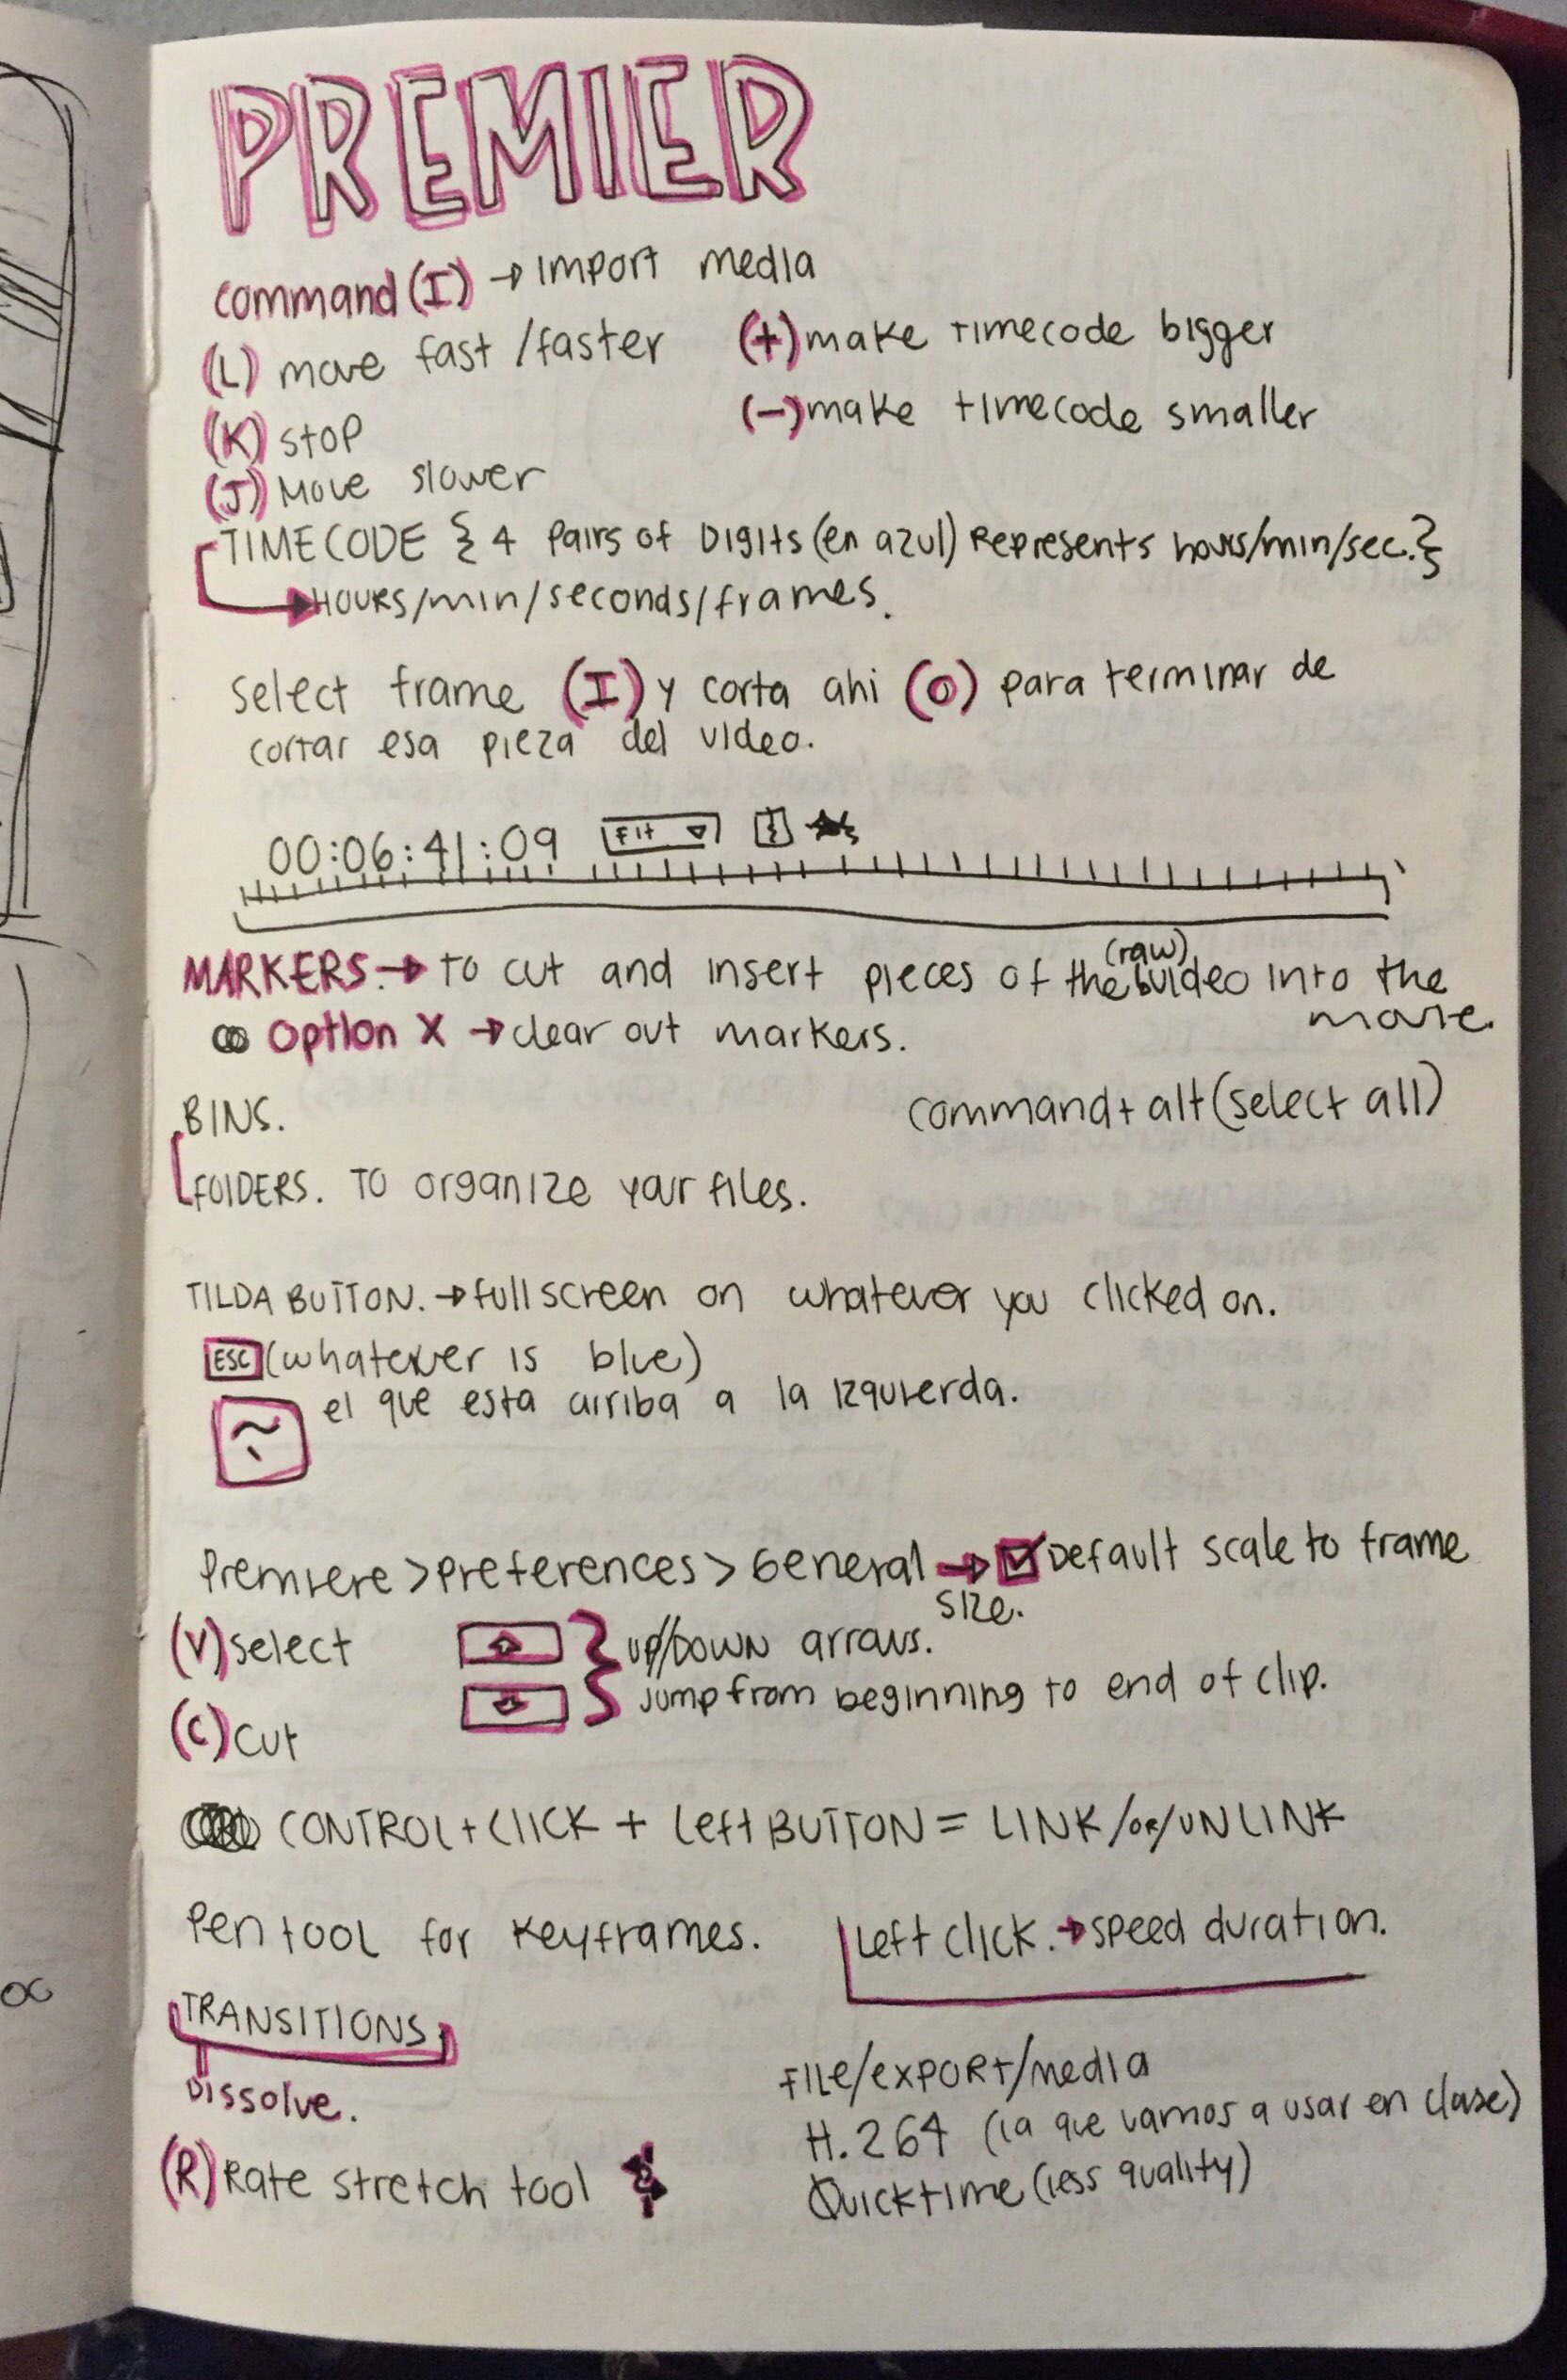 PREMIER
command (I) → Import media
(L) move fast/faster
(+) make timecode bigger
(K) stop
(-) make timecode smaller
(J) Move slower
TIMECODE { 4 Pairs of Digits (en azul) Represents hours/min/sec. }
HOURS/min/seconds/frames.
Select frame (I) y corta ahi (O) para terminar de
cortar esa pieza del video.
00:06:41:09 Fit
MARKERS. → To cut and insert pieces of the (raw) video into the
movie.
Option X → clear out markers.
BINS.
command + alt (select all)
FOLDERS. TO organize your files.
TILDA BUTTON. → full screen on whatever you clicked on.
ESC (whatever is blue)
~ ` el que esta arriba a la izquierda.
Premiere > preferences > General → ☑ Default scale to frame
size.
(V) select
UP//DOWN arrows.
Jump from beginning to end of clip.
(C) Cut
CONTROL + CLICK + Left BUTTON = LINK/OR/UNLINK
Pen tool for keyframes.
Left click. → speed duration.
TRANSITIONS
Dissolve.
File/export/media
H.264 (la que vamos a usar en clase)
(R) Rate stretch tool
Quicktime (less quality)